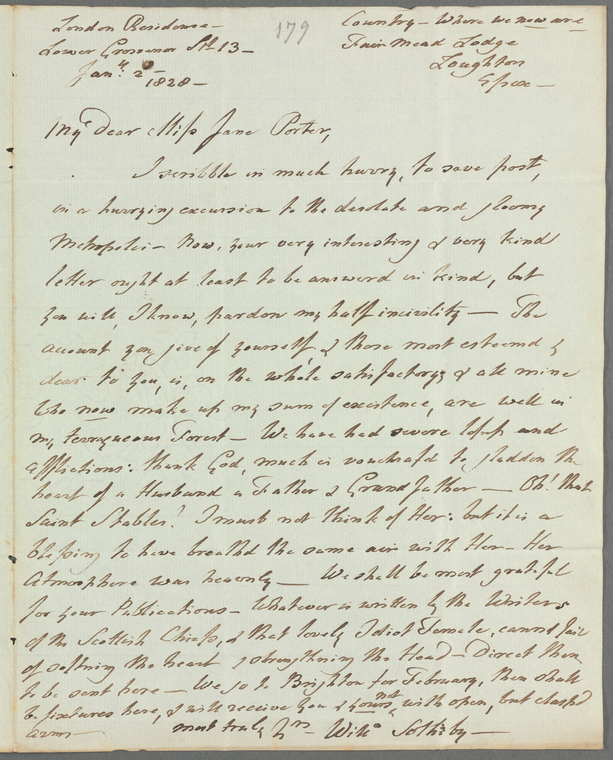 London Residence —
Lower Grosvenor St. 13 —
Jany. 2 —
1828 —
179
Country — Where we now are
Fair Mead Lodge
Loughton
Essex —
My dear Miss Jane Porter,
I scribble in much hurry, to save post,
in a hurrying excursion to the desolate and gloomy
Metropolis — Now, your very interesting & very kind
letter ought at least to be answerd in kind, but
you will, I know, pardon my half incivility — The
account you give of yourself, & those most esteemed &
dear to you, is, on the whole satisfactory & all mine
who now make up my sum of existence, are well in
my Forest — We have had severe losses and
afflictions: thank God, much is vouchsaf'd to gladden the
heart of a Husband a Father & Grandfather — Oh! that
Saint Stables! I must not think of Her: but it is a
blessing to have breath'd the same air with Her — Her
Atmosphere was heavenly — We shall be most grateful
for your Publications — Whatever is written by the Writers
of the Scottish Chiefs, & that lovely Idiot Female, cannot fail
of softning the heart & strengthning the Head — Direct them
to be sent here — We go to Brighton for February, then shall
be fixtures here, & will receive you & yours, not with open, but clasp'd
arms — most truly Yrs Willm Sotheby —